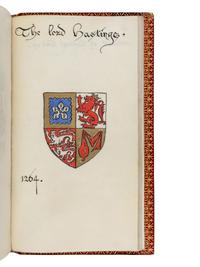 The lord Hastings.
1264.